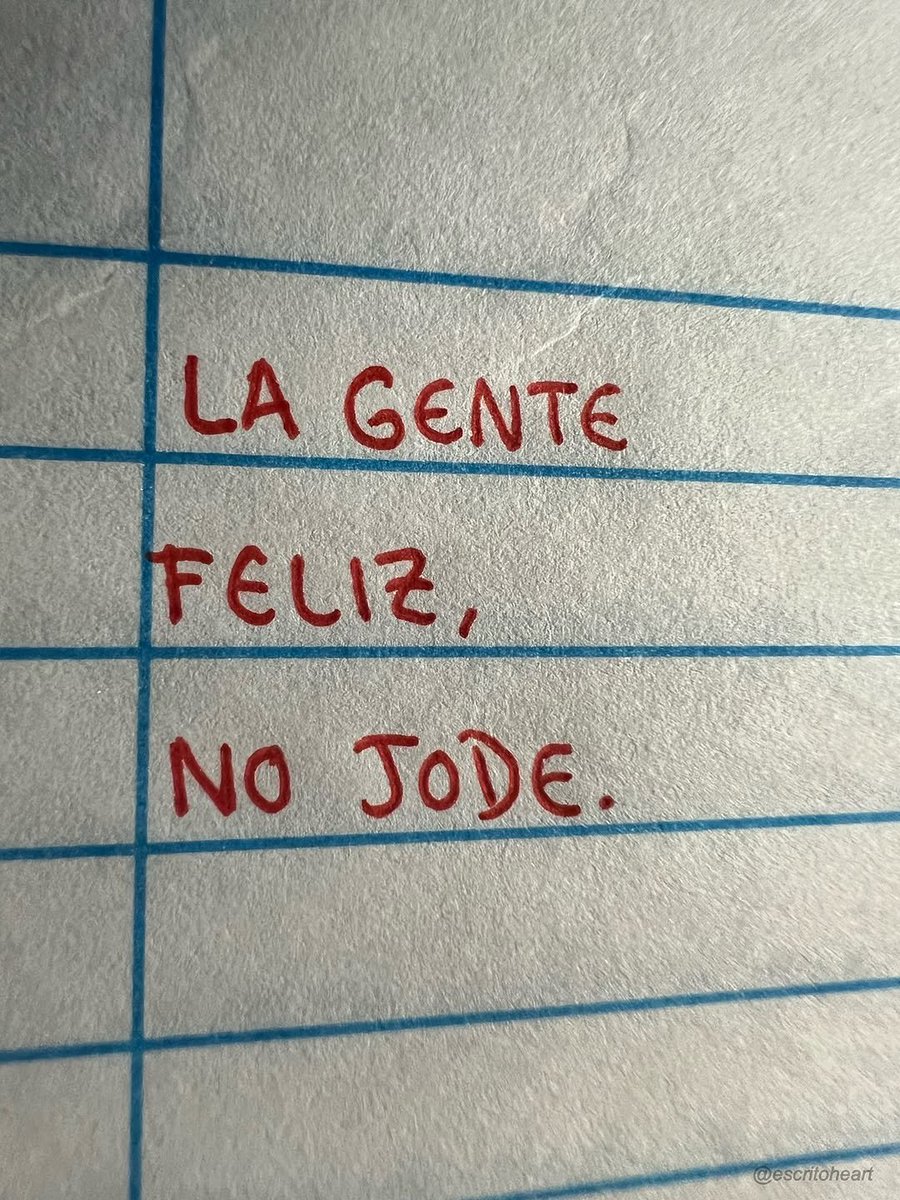 LA GENTE
FELIZ,
NO JODE.
@escritoheart